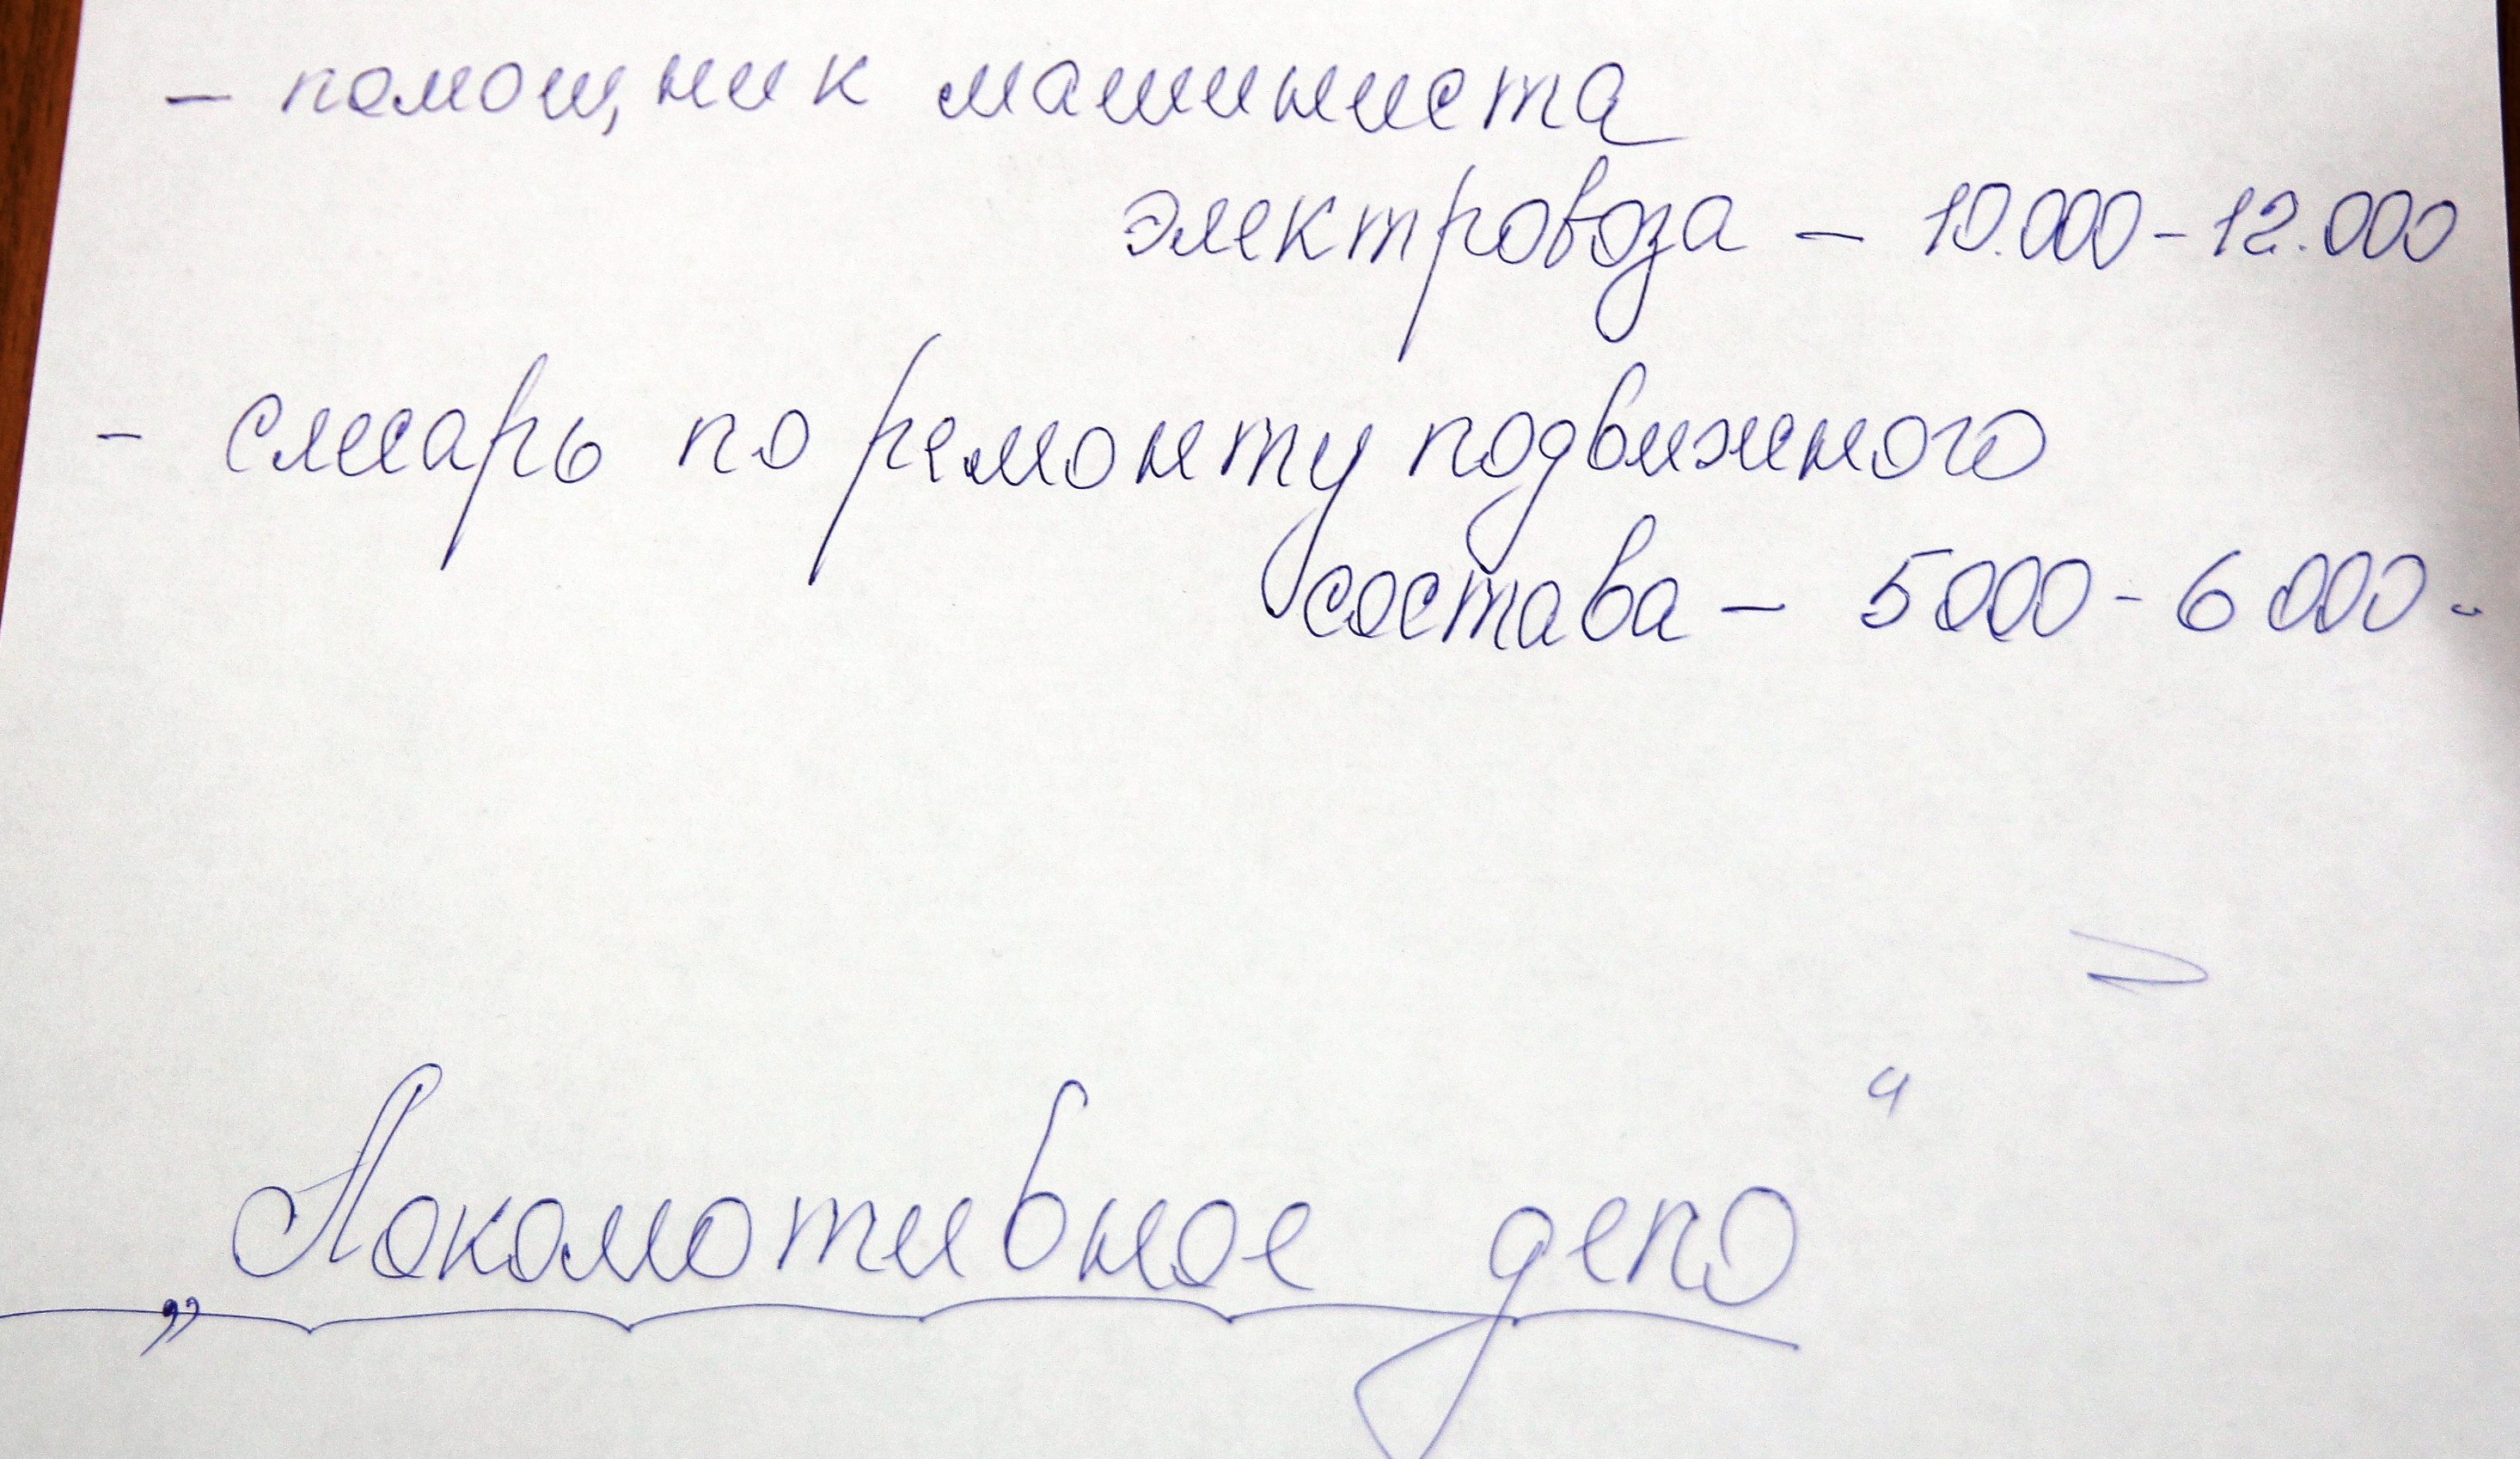 — помощник машиниста
электровоза — 10.000-12.000
- слесарь по ремонту подвижного
состава — 5000-6000-
„Локомотивное депо“